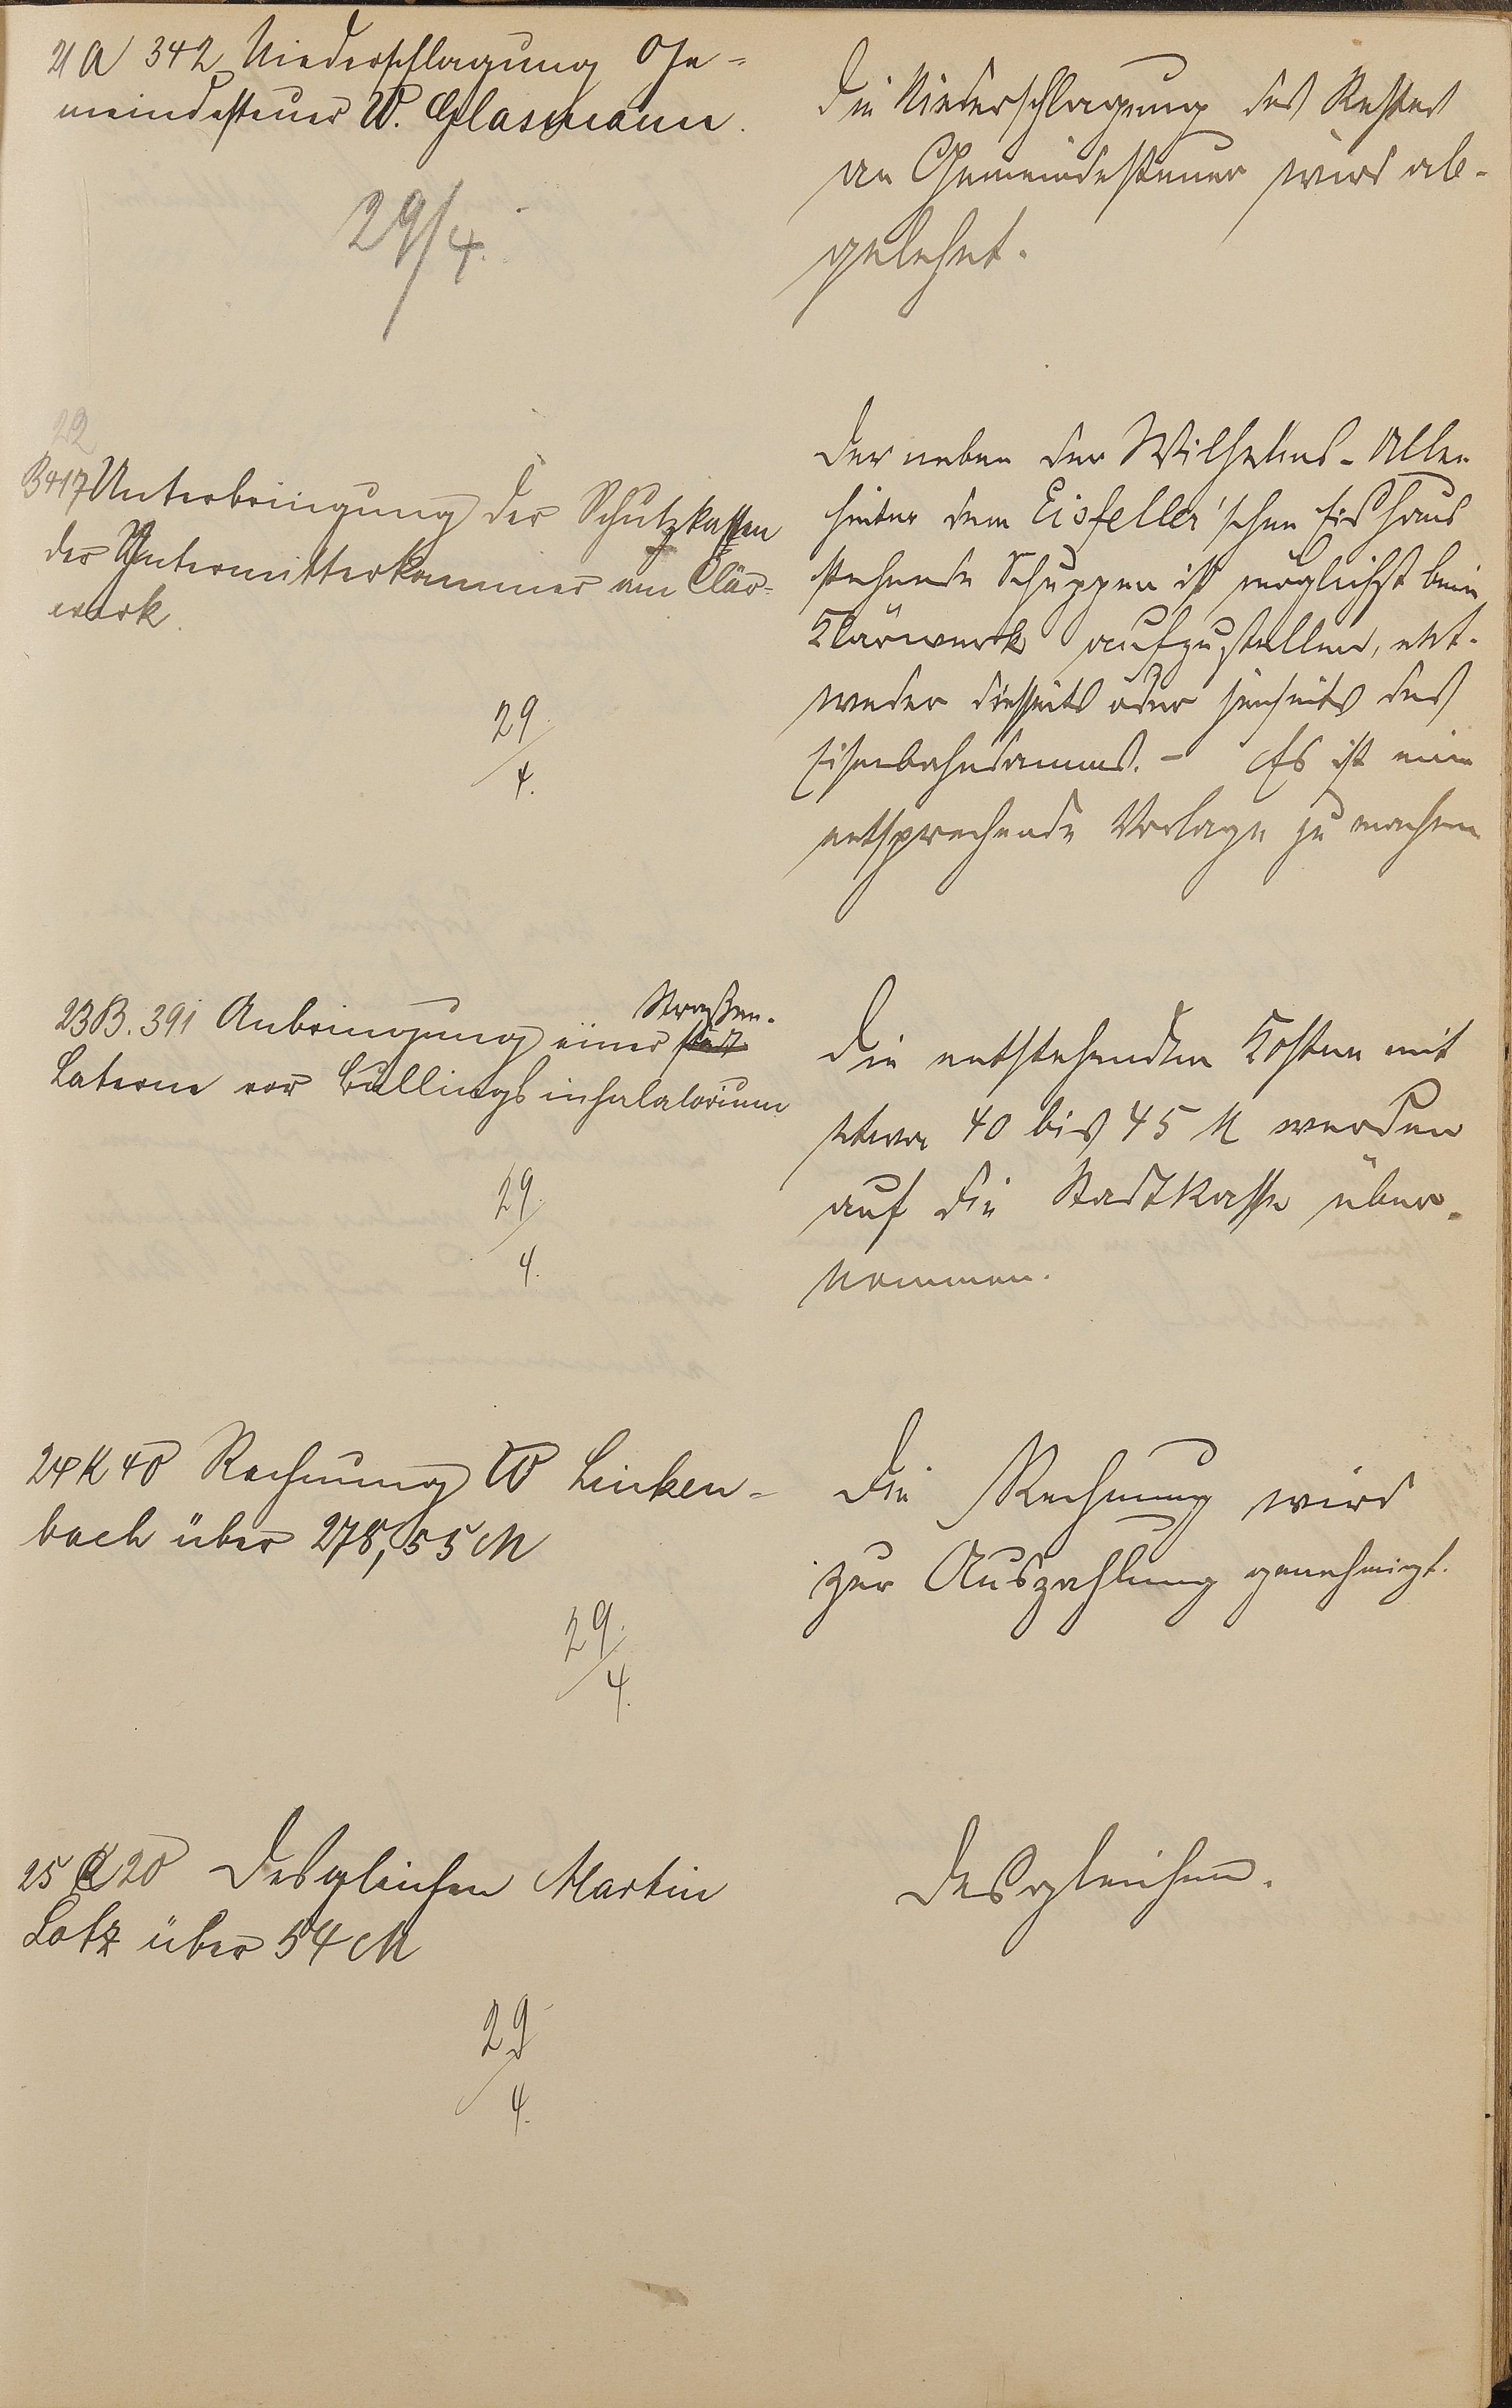 21 A 342 Niederschlagung Ge-
meindesteuer W. Glasmann.
29/4.
Die Niederschlagung des Restes
an Gemeindesteuer wird ab-
gelehnt.
22
B 417 Unterbringung der Schutzkasten
der Untermitterkammer am Clär-
werk.
29.
4.
Der neben der Wilhelms-Allee
hinter dem Eisfeller'schen Eishaus
stehende Schuppen ist möglichst beim
Klärwerk aufzustellen, ent-
weder diesseits oder jenseits des
Eisenbahndamms. - Es ist eine
entsprechende Vorlage zu machen
23 B. 391 Anbringung einer Straßen-
Laterne vor Bullings inhalatorium
29.
4.
Die entstehenden Kosten mit
etwa 40 bis 45 M werden
auf die Stadtkasse über-
nommen.
24 K 40 Rechnung W Linken-
bach über 278,55 M
29.
4.
Die Rechnung wird
zur Auszahlung genehmigt.
25 20 Desgleichen Martin
Lotz über 54 M
29
4.
Desgleichen.